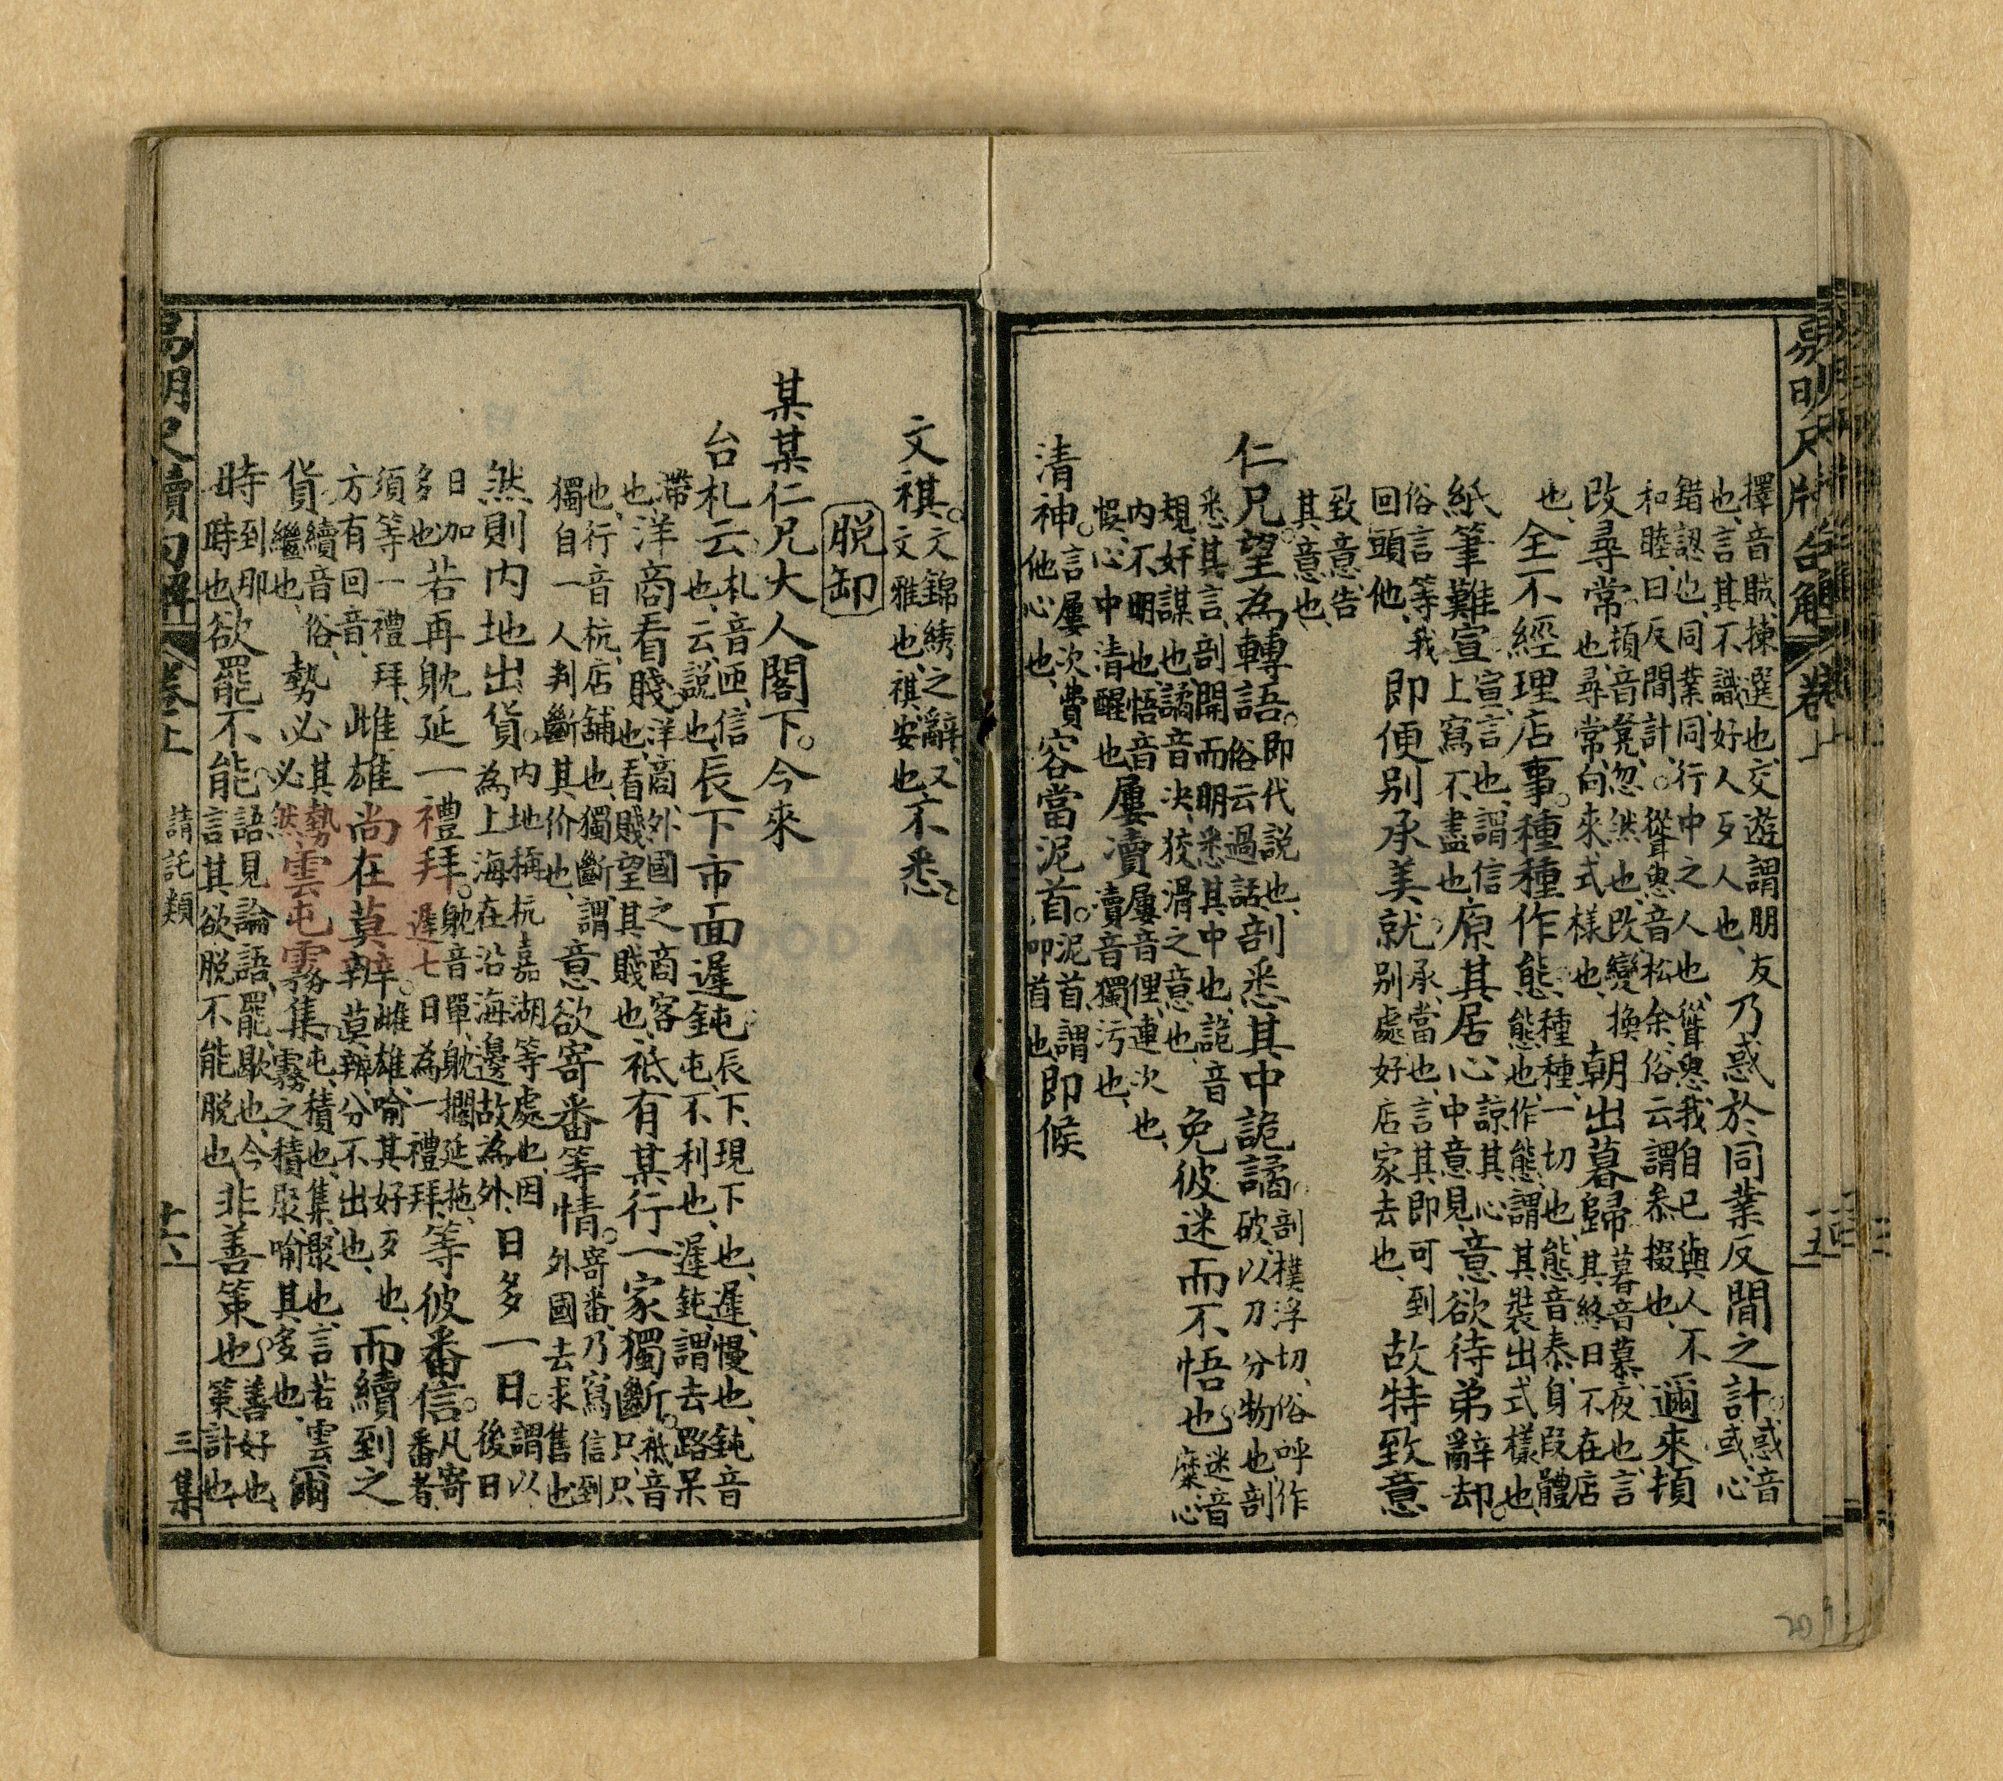 易明尺牘句解 卷上 十五
擇音賊、揀選也、交遊謂朋友
也、言其不識好人歹人也、
乃惑於同業反間之計。惑音
或、心
錯認也、同業同行中之人也、聳恿我自己與人不
和睦、曰反間計。聳恿音松余、俗云謂叅掇也、
邇來頓
改尋常
頓音凳、忽然也、改變換
也、尋常、向來式樣也、
朝出暮歸
暮音慕、夜也、言
其終日不在店
也、全不經理店事。種種作態
種種、一切也、態音泰、身段體
態也、作態、謂其裝出式樣也、
紙筆難宣
宣、言也、謂信
上寫不盡也、
原其居心
諒其心
中意見、
意欲待弟辭却。
俗言等我
回頭他、
即便别承美就
承、當也、言其即可到
别處好店家去也、
故特致意
致意、告
其意也、
仁兄。望為轉語。
即代說也、
俗云過話、
剖悉其中詭譎。
剖撲浮切、俗呼作
破、以刀分物也剖
悉其言、剖開而明悉其中也、詭音
規、奸謀也、譎音決、狡滑之意也、
免彼迷而不悟也。
迷音
糜、心
内不明也、悟音
悞、心中清醒也、
屢瀆
屢音俚、連次也、
瀆音獨、污也、
清神。
言屢次費
他心也、
容當泥首。
泥首、謂
叩首也、
即候
文祺。
文錦綉之辭、又
文雅也、祺、安也、
不悉。
脱卸
某某仁兄大人閣下。今來
台札云
札音匝、信
也、云、說也、
辰下市面遲鈍
辰下、現下也、遲、慢也、鈍音
屯、不利也、遲鈍、謂去路呆
滯
也、
洋商看賤
洋商、外國之商客
也、看賤望其賤也、
祗有某行一家獨斷。
祗音
只、只
也、行音杭、店舖也、獨斷、謂
獨自一人判斷其价也、
意欲寄番等情。
寄番、乃寫信到
外國去求售也
然則内地出貨。
内地稱杭嘉湖等處也、因
為上海在沿海邊故為外、
日多一日。
謂以
後日
日加
多也、
若再躭延一禮拜。
躭音單、躭擱延拖、
遲七日為一禮拜、
等彼番信。
凡寄
番者、
須等一禮拜、
方有回音、
雌雄尚在莫辨。
雌雄、喻其好歹也、
莫辨、分不出也、
而續到之
貨
續音俗、
繼也、
勢必
其勢
必然、
雲屯霧集。
屯、積也、集、聚也、言若雲
霧之積聚、喻其多也、
爾
時
到那
時也、
欲罷不能。
語見論語、罷、歇也、今
言其欲脱不能脱也、
非善策也。
善、好也、
策、計也、
易明尺牘句解 卷上 請託類 十六 三集